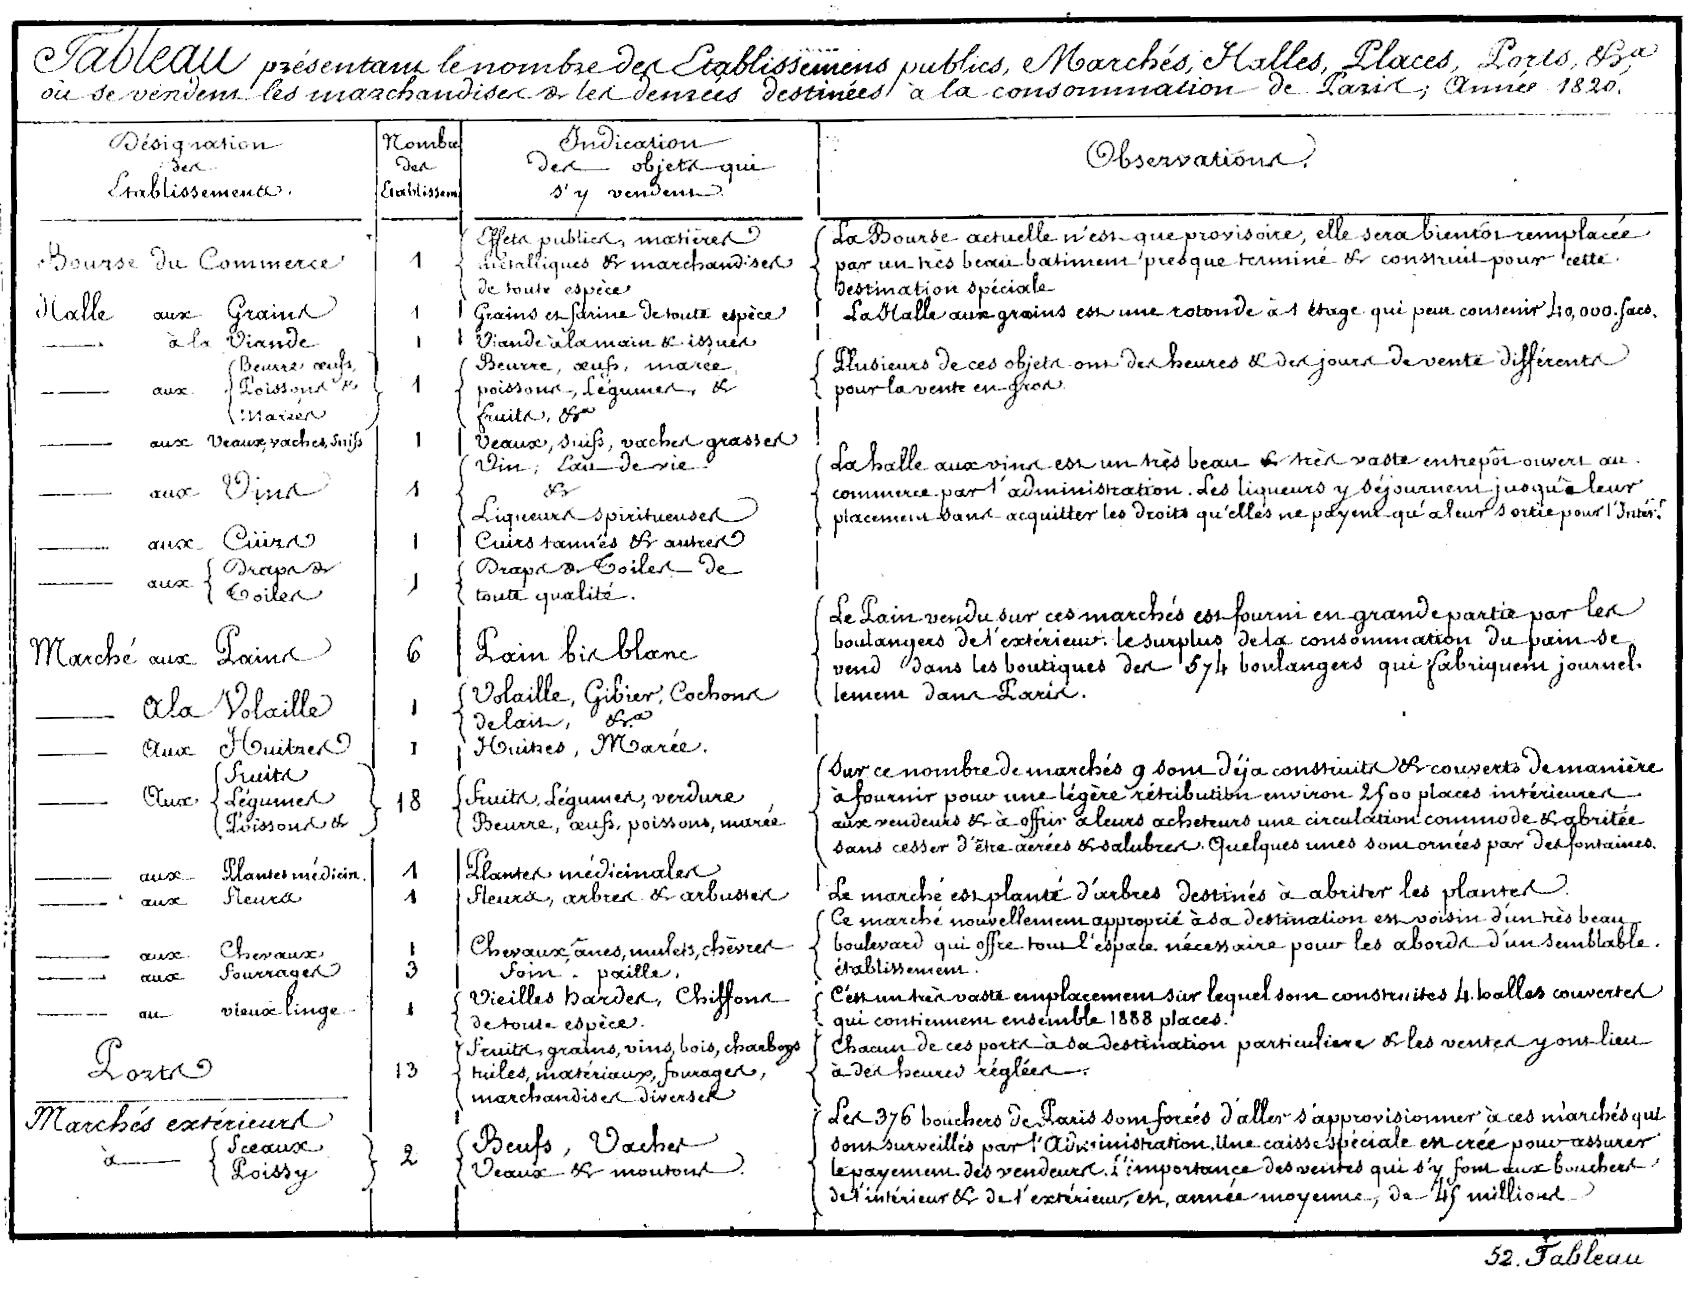 Tableau présentant le nombre des Etablissemens publics, Marchés, Halles, Places, Ports, &a
où se vendent les marchandises & les denrées destinées à la consommation de Paris; Année 1820.
Désignation
des
Etablissements.
Nombre
des
Etablissem
Indication
des objets qui
s'y vendent.
Observations.
Bourse du Commerce
1
Effets publics, matières
métalliques & marchandises
de toute espèce
La Bourse actuelle n'est que provisoire, elle sera bientôt remplacée
par un très beau batiment presque terminé & construit pour cette
destination spéciale
Halle aux Grains
1
Grains et farine de toute espèce
La Halle aux grains est une rotonde à 1 étage qui peut contenir 40,000 sacs.
à la Viande
1
Viande à la main & issues
aux
Beurre œufs,
Poissons &
Marées
1
Beurre, œufs, marée,
poissons, Légumes, &
fruits, &a
Plusieurs de ces objets ont des heures & des jours de vente différents
pour la vente en gros
aux Veaux, vaches, Suifs
1
Veaux, suifs, vaches grasses
aux Vins
1
Vin, Eau de vie
&
Liqueurs spiritueuses
La halle aux vins est un très beau & très vaste entrepôt ouvert au
commerce par l'administration. Les liqueurs y séjournent jusqu'à leur
placement sans acquitter les droits qu'elles ne payent qu'à leur sortie pour l'Intér.r
aux Cuirs
1
Cuirs tannés & autres
aux
Draps &
Toiles
1
Draps & Toiles de
toute qualité.
Marché aux Pains
6
Pain bis blanc
Le Pain vendu sur ces marchés est fourni en grande partie par les
boulangers de l'extérieur. le surplus de la consommation du pain se
vend dans les boutiques des 574 boulangers qui fabriquent journel-
lement dans Paris.
A la Volaille
1
Volaille, Gibier, Cochons
de lait, &a
Aux Huitres
1
Huitres, Marée.
Aux
Fruits
Légumes
Poissons &
18
Fruits, Légumes, verdure
Beurre, œufs, poissons, marée
Sur ce nombre de marchés 9 sont déja construits & couverts de manière
à fournir pour une légère rétribution environ 2500 places intérieures
aux vendeurs & à offrir à leurs acheteurs une circulation commode & abritée
sans cesser d'être aérées & salubres. Quelques unes sont ornées par des fontaines.
aux Plantes médicin.
1
Plantes médicinales
aux Fleurs
1
Fleurs, arbres & arbustes
Le marché est planté d'arbres destinés à abriter les plantes.
aux Chevaux
1
Chevaux, ânes, mulets, chèvres
Ce marché nouvellement approprié à sa destination est voisin d'un très beau
boulevard qui offre tout l'espace nécessaire pour les abords d'un semblable
établissement.
aux Fourrages
3
Foin, paille,
au vieux linge
1
Vieilles hardes, Chiffons
de toute espèce.
C'est un très vaste emplacement sur lequel sont construites 4 halles couvertes
qui contiennent ensemble 1888 places.
Ports
13
Fruits, grains, vins, bois, charbons
tuiles, matériaux, fourages,
marchandises diverses
Chacun de ces ports à sa destination particuliere & les ventes y ont lieu
à des heures réglées.
Marchés extérieurs
à
Sceaux
Poissy
2
Bœufs, Vaches
Veaux & moutons.
Les 376 bouchers de Paris sont forcés d'aller s'approvisionner à ces marchés qui
sont surveillés par l'Administration. Une caisse spéciale est crée pour assurer
le payement des vendeurs. L'importance des ventes qui s'y font aux bouchers
de l'intérieur & de l'extérieur, est, année moyenne, de 45 millions
52. Tableau